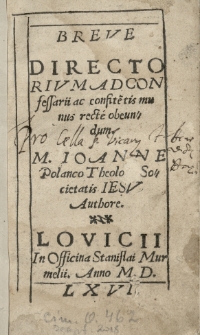 BREVE
DIRECTO
RIVM AD CON
fessarii ac confitẽtis mu
nus rectè obeun,
dum,
Pro Cella
M. IOANNE
Polanco Theolo So-
cietatis IESV
Authore.
LOVICII
In Officina Stanislai Mur
melii. Anno M. D.
LXVI
Cim. O. 462